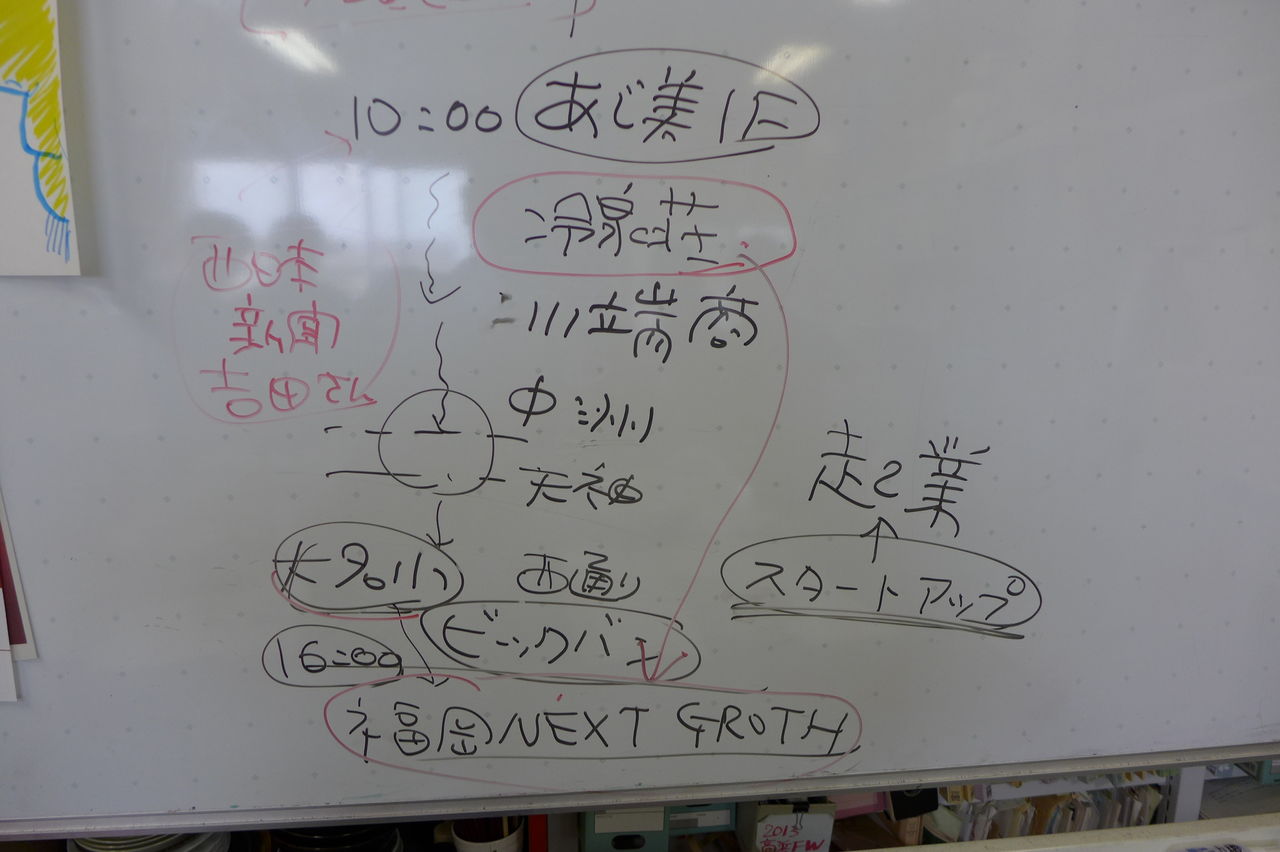 10:00 あじ美1F
冷泉荘
川端商
西日本
新聞
吉田さん
中洲
天神
西通り
走る業
スタートアップ
ビックバナ
16:00
福岡NEXT GROTH
2013